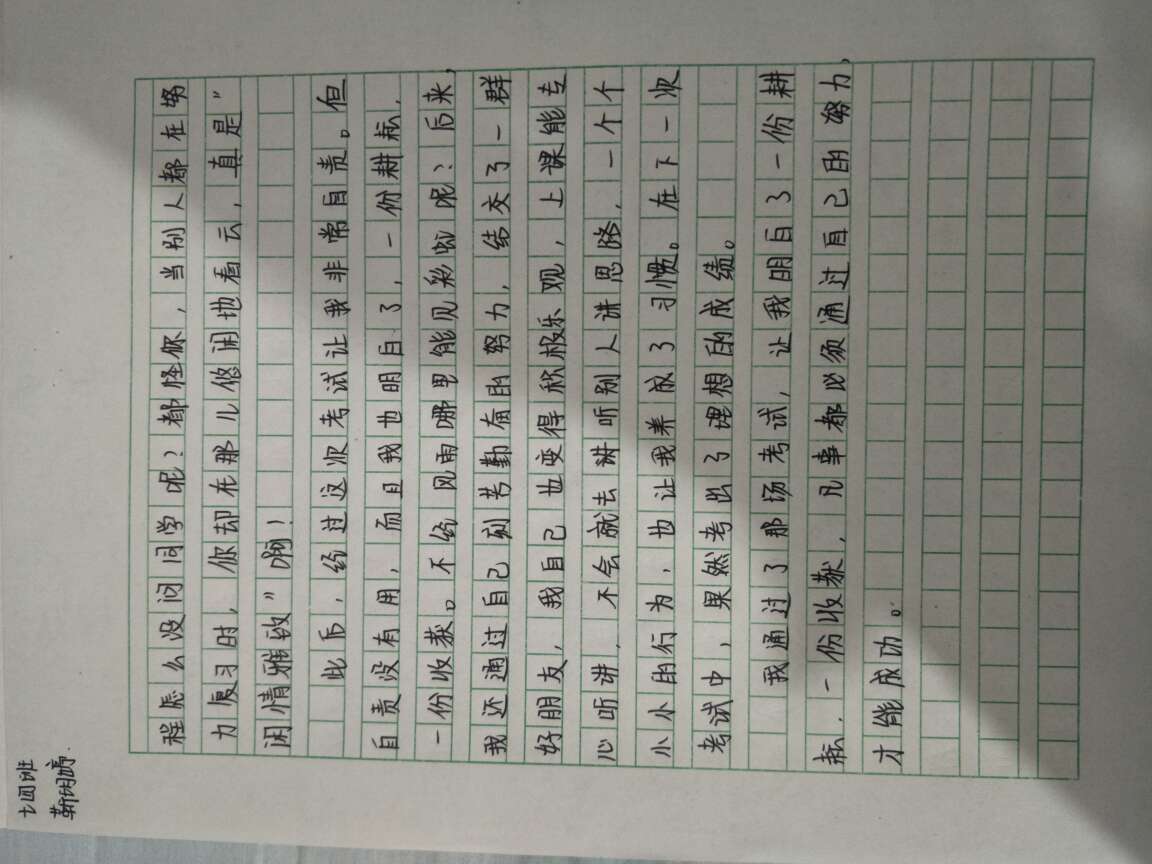 七四班
靳明婷
程怎么没问同学呢？都怪你，当别人都在努
力复习时，你却在那儿悠闲地看云，真是"
闲情雅致"啊！
此后，经过这次考试让我非常自责。但
自责没有用，而且我也明白了，一份耕耘，
一份收获。不经风雨哪里能见彩虹呢？后来，
我还通过自己刻苦勤奋的努力，结交了一群
好朋友，我自己也变得积极乐观，上课能专
心听讲，不会就去讲听别人讲思路，一个个
小小的行为，也让我养成了习惯。在下一次
考试中，果然考出了理想的成绩。
我通过了那场考试，让我明白了一份耕
耘，一份收获，凡事都必须通过自己的努力，
才能成功。